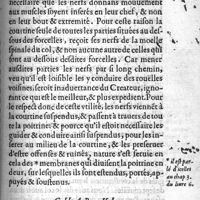 necessaire que les nerfs donnans mouvement
aux muscles soyent inserés en leur chef, & non
en leur bout & extremité. Pour ceste raison la
courtine seule de toutes les parties situées au des-
sus des forcelles, reçoit les nerfs de la moelle
spinale du col, & non aucune autre de celles qui
sont au dessous desdites forcelles. Car mener
ausdites parties les nerfs par si long chemin,
veu qu'il est loisible les y conduire des rouelles
voisines, seroit inadvertance du Createur, igno-
rant ce qui est le meilleur, & plus expedient. Pour
le respect donc de ceste utilité, les nerfs viennent à
la courtine suspendus, & passent à travers de tou-
te la poitrine & pource qu'il est necessaire les
guider & conduire ainsi suspendus, pour les in-
serer au milieu de la courtine, & les preserver
d'estre offensés & ruinés, nature s'est servie en
cela des * membranes qui divisent la poitrine en
deux, sur lesquelles ils sont estendus, portés, ap-
puyés & soustenus.
* Il est par-
lé d'icelles
au chap. 3.
du livre 6.